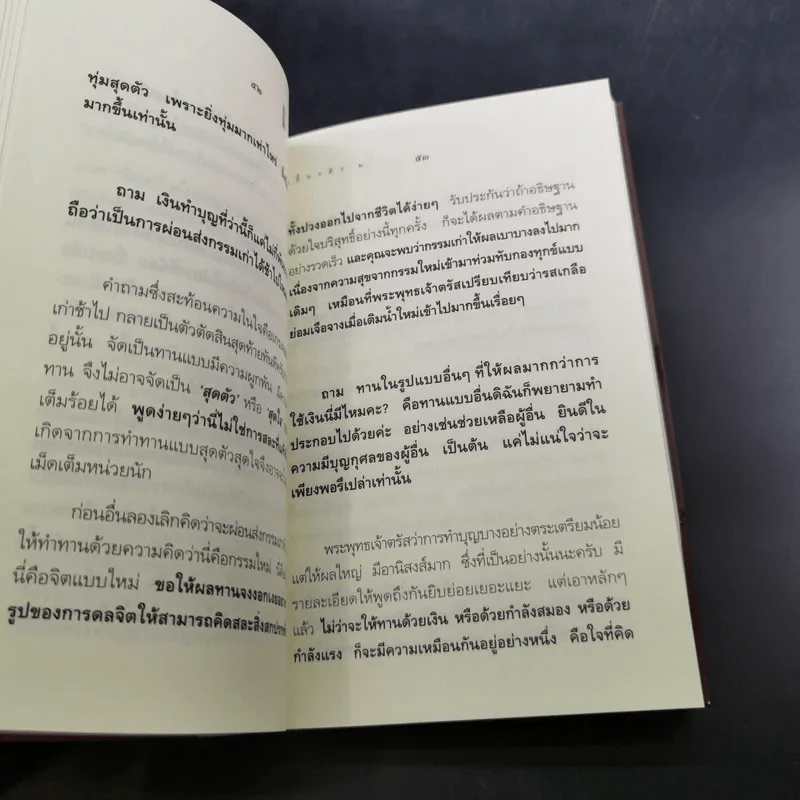 ๕๒
ทุ่มสุดตัว เพราะยิ่งทุ่มมากเท่าไหร่
มากขึ้นเท่านั้น
ถาม เงินทำบุญที่ว่านี้ก็แค่ไม่กี่
ถือว่าเป็นการผ่อนส่งกรรมเก่าได้ช้าไป
คำถามซึ่งสะท้อนความในใจคือ
เก่าช้าไป กลายเป็นตัวตัดสินสุดท้าย
อยู่นั้น จัดเป็นทานแบบมีความผูกพัน
ทาน จึงไม่อาจจัดเป็น ‘สุดตัว’ หรือ
เต็มร้อยได้ พูดง่ายๆว่านี่ไม่ใช่การสละ
เกิดจากการทำทานแบบสุดตัวสุดใจจึงอาจ
เม็ดเต็มหน่วยนัก
ก่อนอื่นลองเลิกคิดว่าจะผ่อนส่งกรรม
ให้ทำทานด้วยความคิดว่านี่คือกรรมใหม่
นี่คือจิตแบบใหม่ ขอให้ผลทานจงงอกเงย
รูปของการดลจิตให้สามารถคิดสละสิ่งสกปรก
๕๓
ทั้งปวงออกไปจากชีวิตได้ง่ายๆ รับประกันว่าถ้าอธิษฐาน
ด้วยใจบริสุทธิ์อย่างนี้ทุกครั้ง ก็จะได้ผลตามคำอธิษฐาน
อย่างรวดเร็ว และคุณจะพบว่ากรรมเก่าให้ผลเบาบางลงไปมาก
เนื่องจากความสุขจากกรรมใหม่เข้ามาท่วมทับกองทุกข์แบบ
เดิมๆ เหมือนที่พระพุทธเจ้าตรัสเปรียบเทียบว่ารสเกลือ
ย่อมเจือจางเมื่อเติมน้ำใหม่เข้าไปมากขึ้นเรื่อยๆ
ถาม ทานในรูปแบบอื่นๆ ที่ให้ผลมากกว่าการ
ใช้เงินนี่มีไหมคะ? คือทานแบบอื่นดิฉันก็พยายามทำ
ประกอบไปด้วยค่ะ อย่างเช่นช่วยเหลือผู้อื่น ยินดีใน
ความมีบุญกุศลของผู้อื่น เป็นต้น แค่ไม่แน่ใจว่าจะ
เพียงพอรึเปล่าเท่านั้น
พระพุทธเจ้าตรัสว่าการทำบุญบางอย่างตระเตรียมน้อย
แต่ให้ผลใหญ่ มีอานิสงส์มาก ซึ่งที่เป็นอย่างนั้นนะครับ มี
รายละเอียดให้พูดถึงกันยิบย่อยเยอะแยะ แต่เอาหลักๆ
แล้ว ไม่ว่าจะให้ทานด้วยเงิน หรือด้วยกำลังสมอง หรือด้วย
กำลังแรง ก็จะมีความเหมือนกันอยู่อย่างหนึ่ง คือใจที่คิด